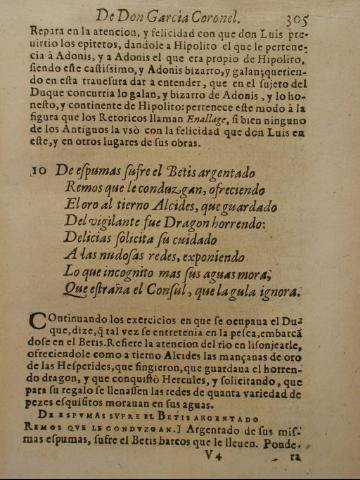 De Don Garcia Coronel. 305
Repara en la atencion, y felicidad con que don Luis pre-
uirtio los epitetos, dandole a Hipolito el que le pertene-
cia à Adonis, y a Adonis el que era propio de Hipolito,
siendo este castissimo, y Adonis bizarro, y galan; querien-
do en esta trauesura dat a entender, que en el sujeto del
Duque concurria lo galan, y bizarro de Adonis, y lo ho-
nesto, y continente de Hipolito: pertenece este modo à la
figura que los Retoricos llaman Enallage, si bien ninguno
de los Antiguos la vsò con la felicidad que don Luis en
este, y en otros lugares de sus obras.
10 De espumas sufre el Betis argentado
Remos que le conduzgan, ofreciendo
El oro al tierno Alcides, que guardado
Del vigilante fue Dragon horrendo:
Delicias solicita su cuidado
A las nudosas redes, exponiendo
Lo que incognito mas sus aguas mora,
Que estraña el Consul, que la gula ignora.
Continuando los exercicios en que se ocupaua el Du-
que, dize, q̃ tal vez se entretenia en la pesca, embarcã
dose en el Betis. Refiere la atencion del rio en lisonjearle,
ofreciendole como a tierno Alcides las mançanas de oro
de las Hesperides, que fingieron, que guardaua el horren-
do dragon, y que conquistò Hercules, y solicitando, que
para su regalo se llenassen las redes de quanta variedad de
pezes esquisitos morauan en sus aguas.
De espumas sufre el Betis argentado
Remos que le conduzgan.] Argentado de sus mis-
mas espumas, sufre el Betis barcos que le lleuen. Ponde-
V 4 ra